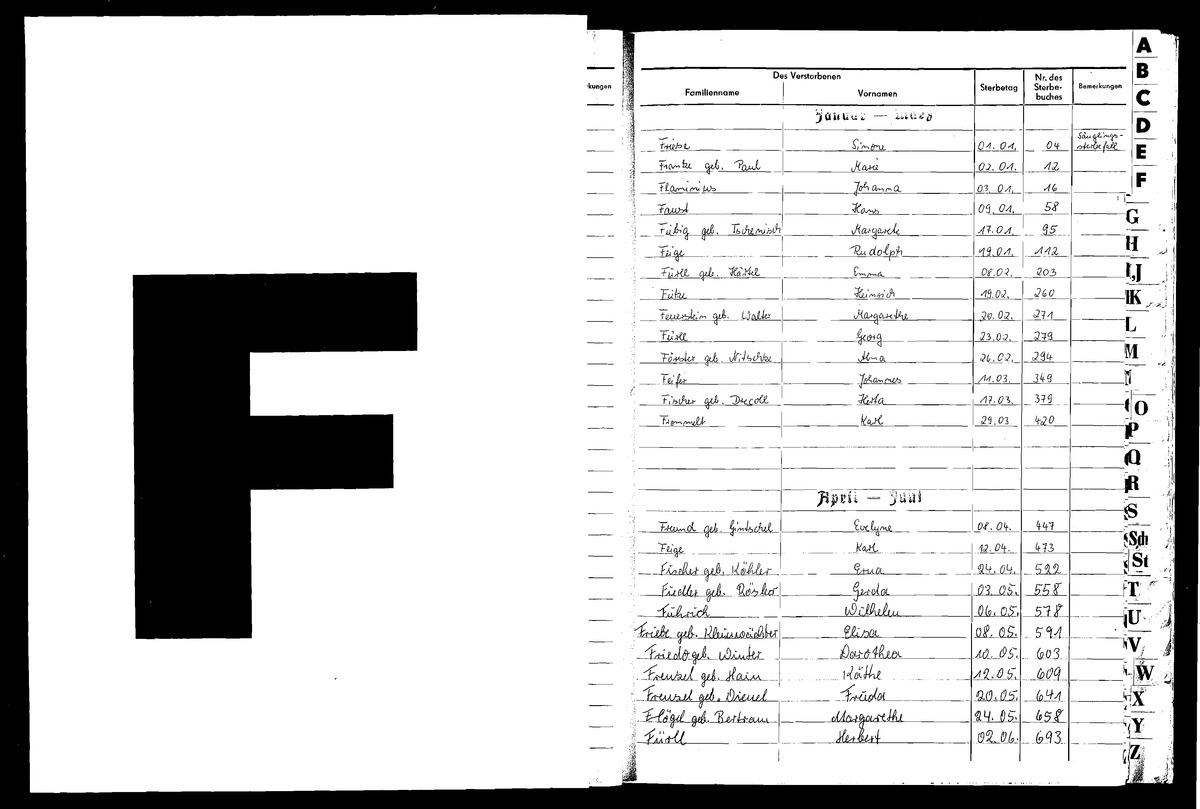 F
kungen
Des Verstorbenen
Familienname Vornamen Sterbetag Nr. des Sterbe-buches Bemerkungen
Januar — März
Friebe Simone 01.01. 04 Säuglings-sterbefall
Franke geb. Paul Marie 02.01. 12
Flaminius Johanna 03.01. 16
Faust Hans 09.01. 58
Fiebig geb. Margarete 17.01. 95
Feige Rudolph 19.01. 112
Fürll geb. Emma 08.02. 203
Heinrich 19.02. 260
Feuerstein geb. Walter Margarethe 20.02. 271
Fürll Georg 23.02. 279
Förster geb. Nitschke Alma 26.02. 294
Feifer Johannes 11.03. 349
Fischer geb. Herta 17.03. 379
Frommelt Karl 29.03 420
April — Juni
Freund geb. Gintschel Evelyne 08.04. 447
Feige Karl 12.04. 473
Fischer geb. Köhler Erna 24.04. 522
Fiedler geb. Rösler Gerda 03.05. 558
Führich Wilhelm 06.05. 578
Friebe geb. Kleinwächter Elisa 08.05. 591
Friedo geb. Winter Dorothea 10.05. 603
Frenzel geb. Hain Käthe 12.05. 609
Frenzel geb. Dienel Frieda 20.05. 641
Flögel geb. Bertram Margarethe 24.05. 658
Fürll Herbert 02.06. 693
A
B
C
D
E
F
G
H
I,J
K
L
M
O
P
Q
R
S
Sch
St
T
U
V
W
X
Y
Z